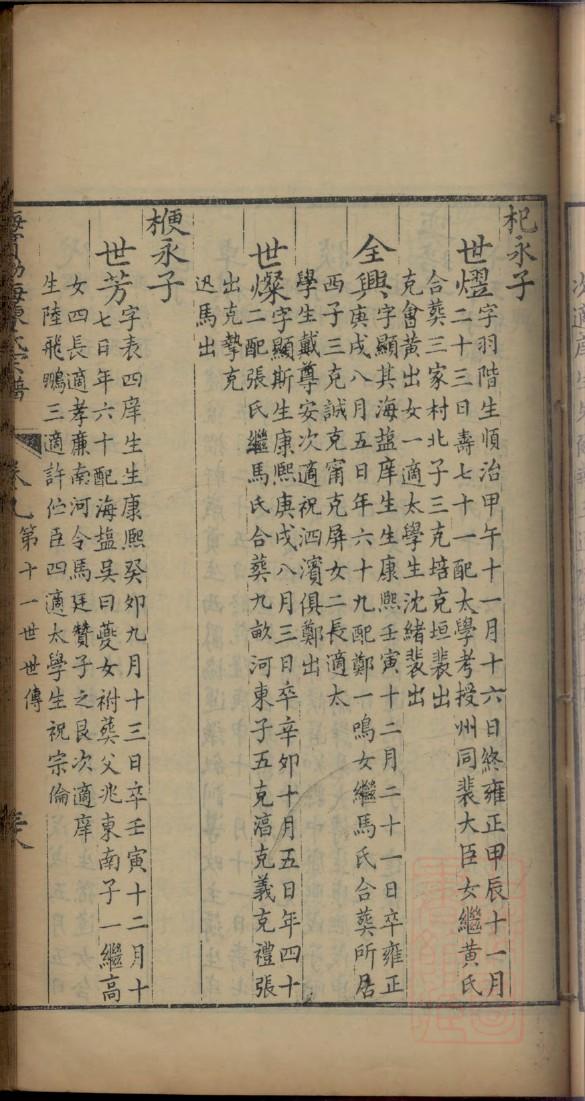 杞永子
世熠
字羽階生順治甲午十一月十六日終雍正甲辰十一月
二十三日壽七十一配太學考授州同裴大臣女繼黃氏
合葬三家村北子三克培克垣裴出
克會黃出女一適太學生沈緒裴出
全興
字顯其海盐庠生生康熙壬寅十二月二十一日卒雍正
庚戌八月五日年六十九配鄭一鳴女繼馬氏合葬所居
西子三克誠克甯克屏女二長適太
學生戴尊安次適祝泗濱俱鄭出
世燦
字顯斯生康熙庚戌八月三日卒辛卯十月五日年四十
二配張氏繼馬氏合葬九畝河東子五克滈克義克禮張
出克摯克
馬出
梗永子
世芳
字表四庠生生康熙癸卯九月十三日卒壬寅十二月十
七日年六十配海盐吴曰夔女祔葬父兆東南子一繼高
女四長適孝廉南河令馬廷贊子之艮次適庠
生陸飛鵬三適許伫臣四適太學生祝宗倫
海氏宗譜
卷九
第十一世世傳